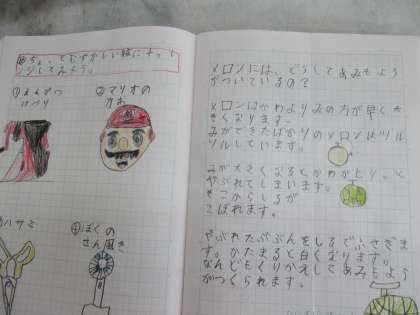 ちょっとむずかしい絵にチャレンジしてみよう。
①えんぴつ
けずり
②マリオの
かお
ハサミ
④ぼくの
せん風き
メロンには、どうしてあみもよう
がついているの?
メロンはかわよりみの方が早く大
きくなります。
みができたばかりのメロンはツル
ツルしています。
みが大きくなるとかわがピリッと
やぶれてしまいます。
そこからしるが
こぼれます。
やぶれたぶぶんをしるでふさぎま
す。かたまると白くなります。
なんどもくりかえしてあみもよう
がつくられます。